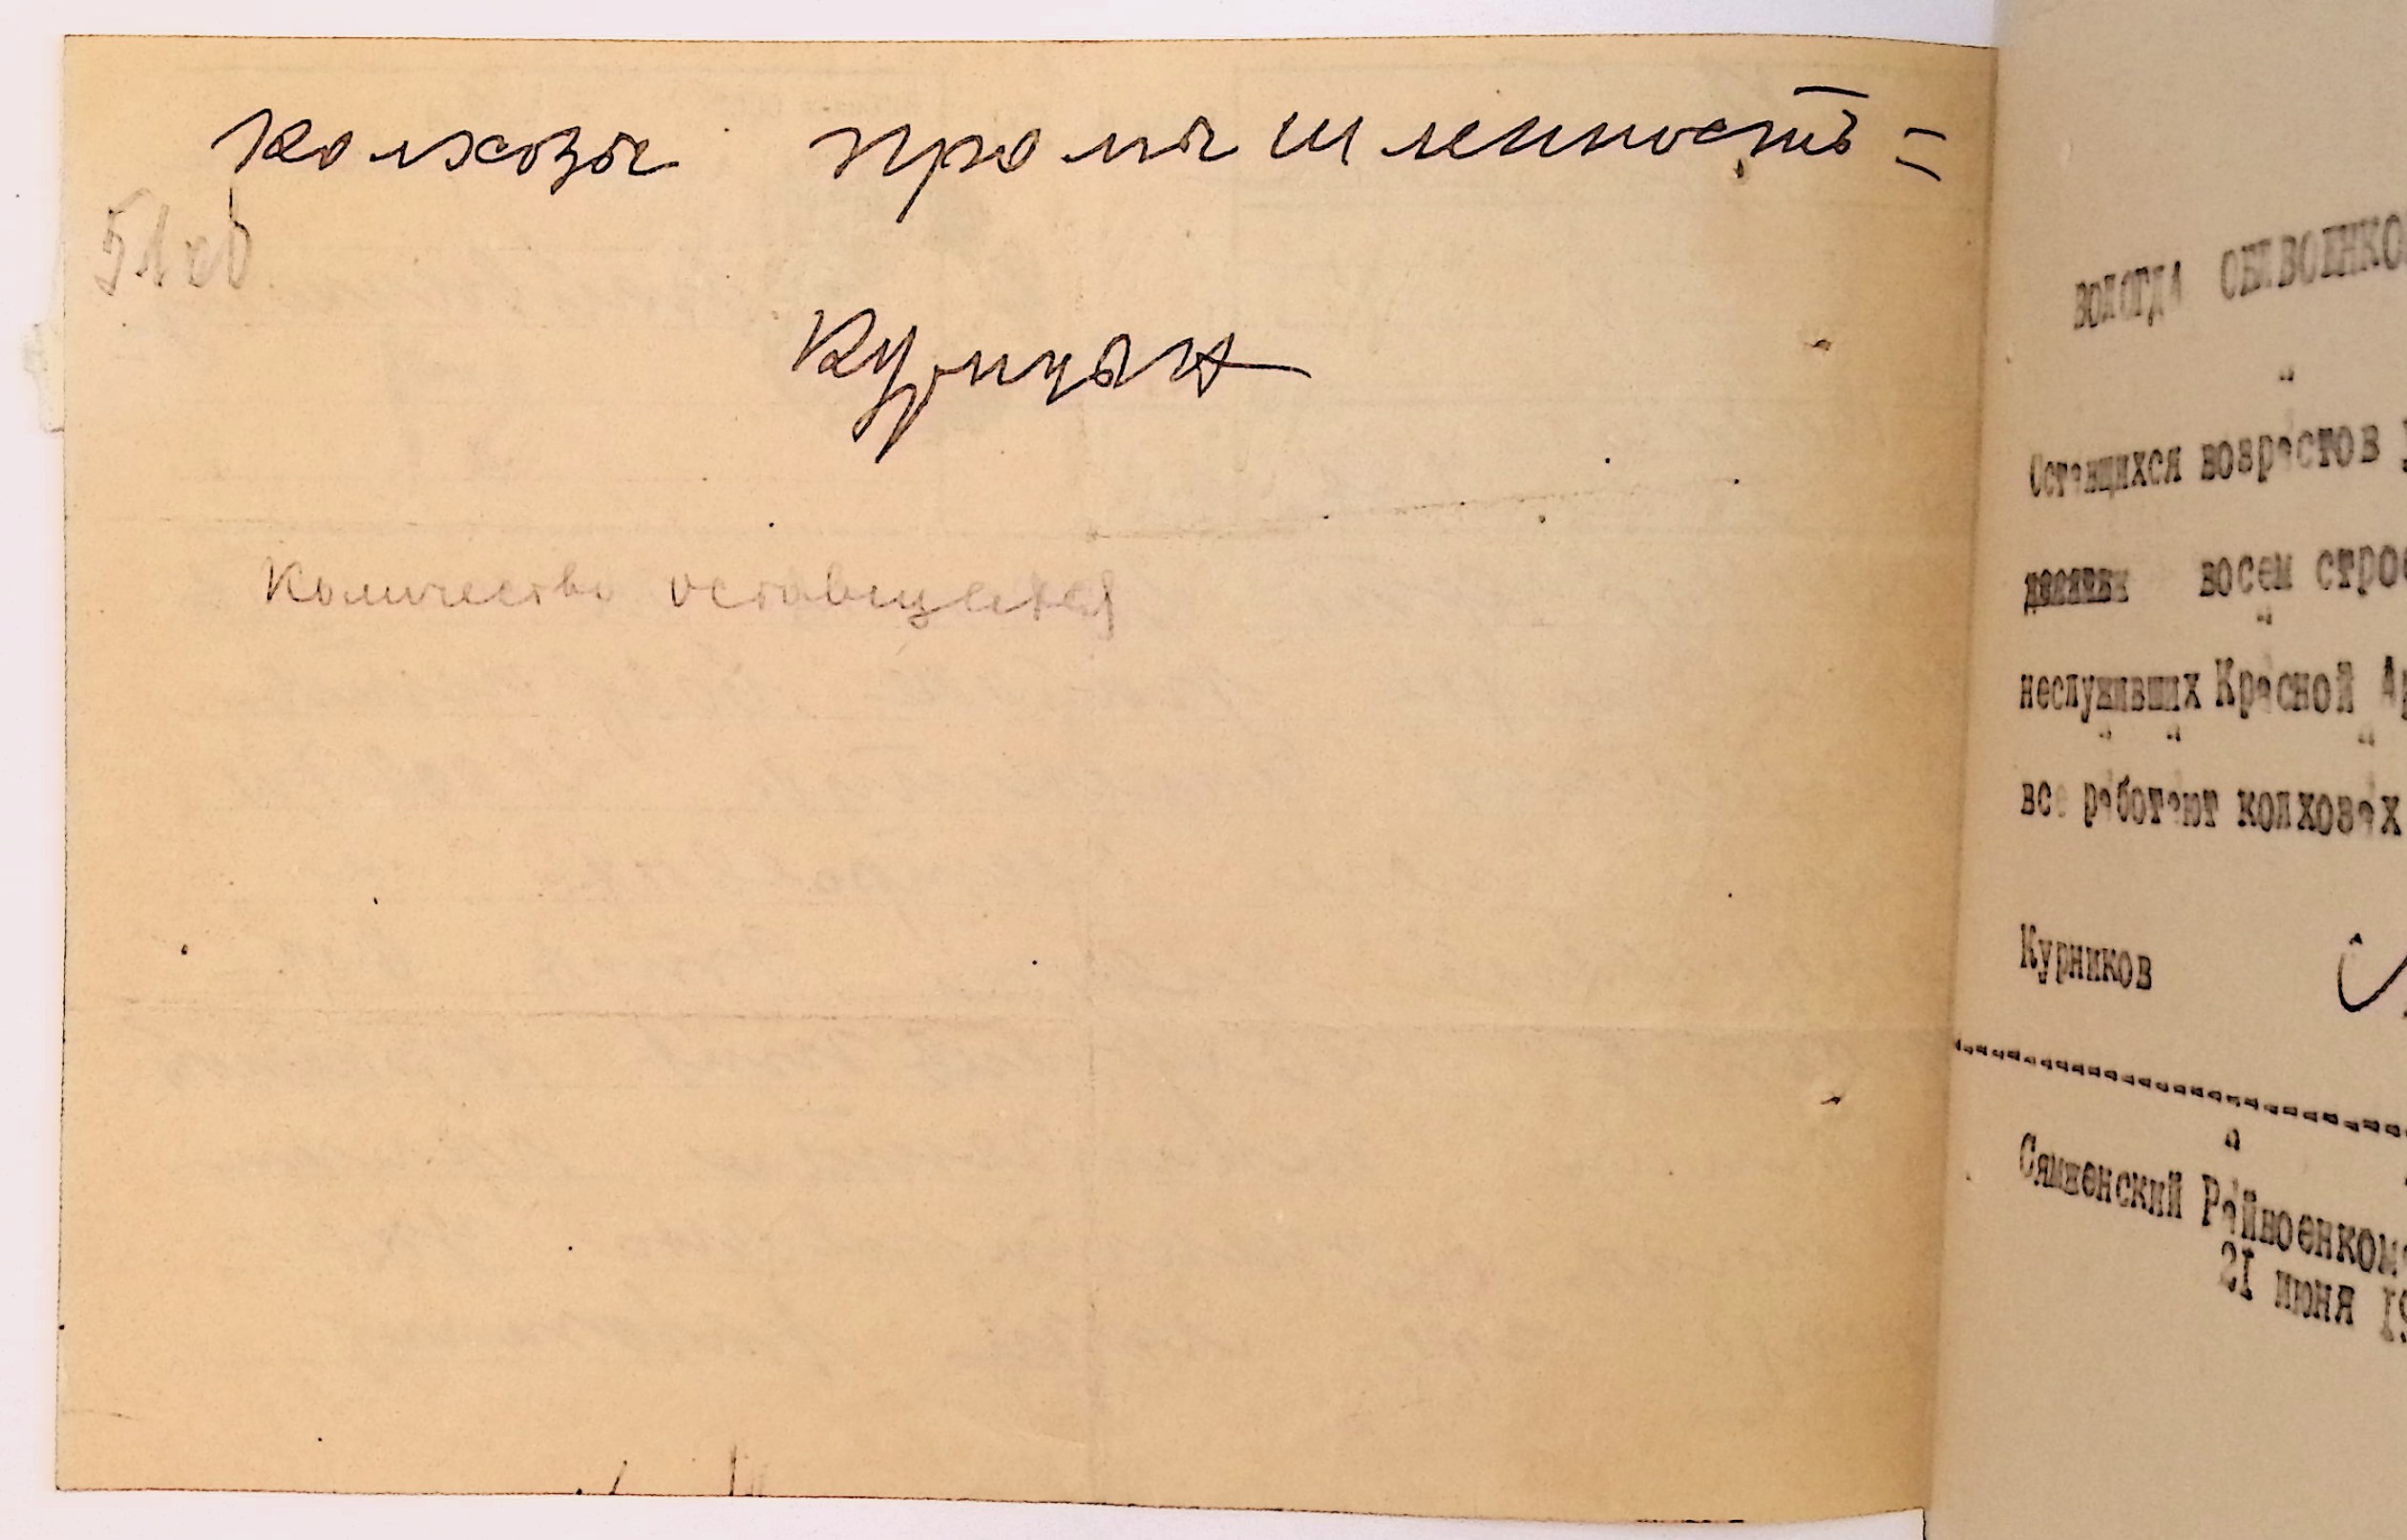 колхозы промышленность =
51об
Курицын
Количество оставшихся
ВОЛОГДА ОБЛВОЕНКО
Оставщихся возрастов
восем строе
неслуживших Красной Ар
все работают колхозах
Курников
Сямженский Райвоенком
21 июня 19